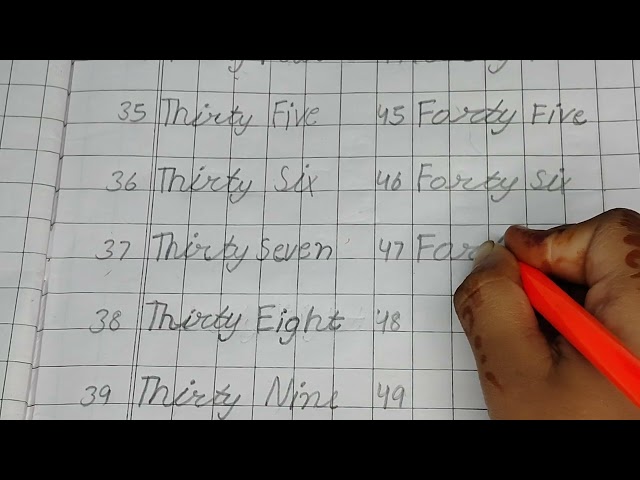 35 Thirty Five 45 Fordy Five
36 Thirty Six 46 Forty Six
37 Thirty Seven 47 For
38 Thirty Eight 48
39 Thirty Nine 49